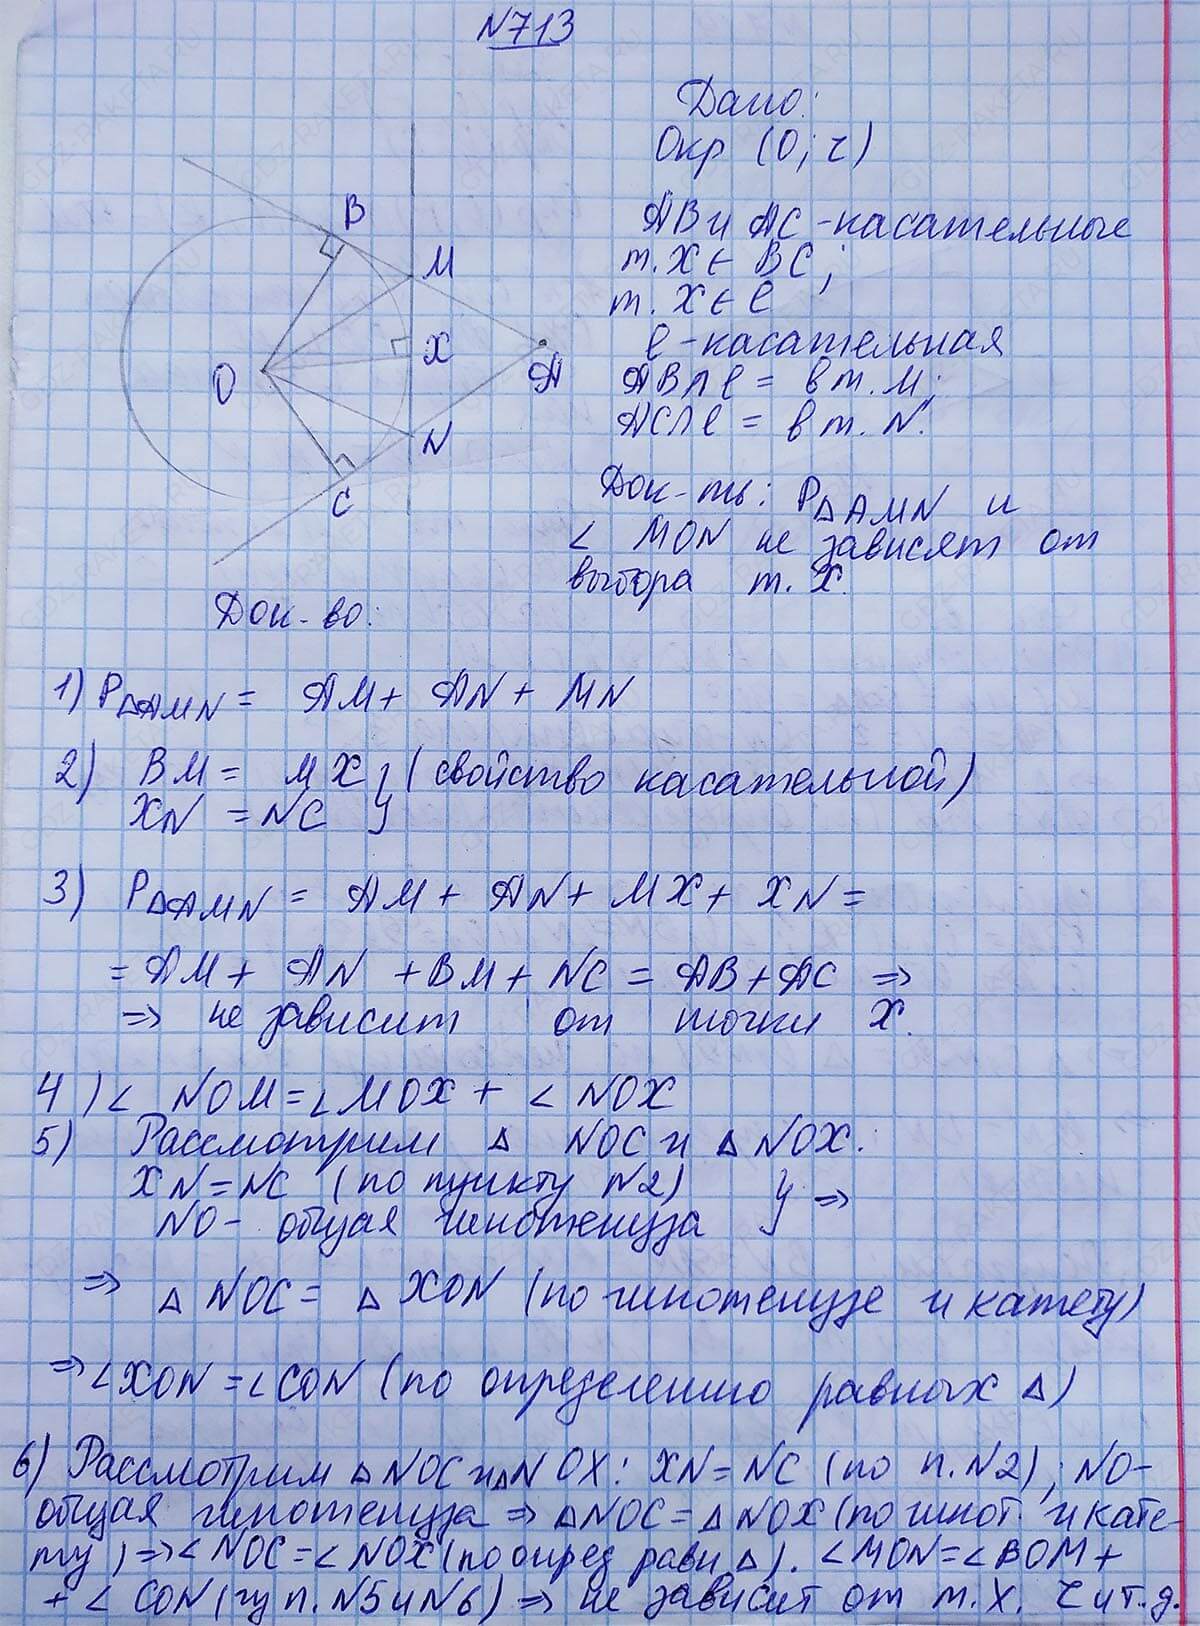 N713
Дано:
Окр (O; r)
AB и AC - касательные
т. X ∈ BC;
т. X ∈ l
l - касательная
AB ∩ l = в т. M;
AC ∩ l = в т. N.
Док-ть: P△AMN и
∠ MON не зависят от
выбора т. X.
B
M
X
A
O
N
C
Док-во:
1) P△AMN = AM + AN + MN
2) BM = MX } (свойство касательной)
XN = NC }
3) P△AMN = AM + AN + MX + XN =
= AM + AN + BM + NC = AB + AC ⇒
⇒ не зависит от точки X.
4) ∠ NOM = ∠ MOX + ∠ NOX
5) Рассмотрим △ NOC и △ NOX:
XN = NC (по пункту N2) } ⇒
NO - общая гипотенуза
⇒ △ NOC = △ XON (по гипотенузе и катету)
⇒ ∠XON = ∠CON (по определению равных △)
6) Рассмотрим △NOC и △NOX: XN = NC (по п. N2); NO-
общая гипотенуза ⇒ △NOC = △NOX (по гипот. и кате-
ту) ⇒ ∠NOC = ∠NOX (по опред равн △). ∠MON = ∠BOM +
+ ∠ CON (из п. N5 и N6) ⇒ не зависит от т. X. Ч и т. д.